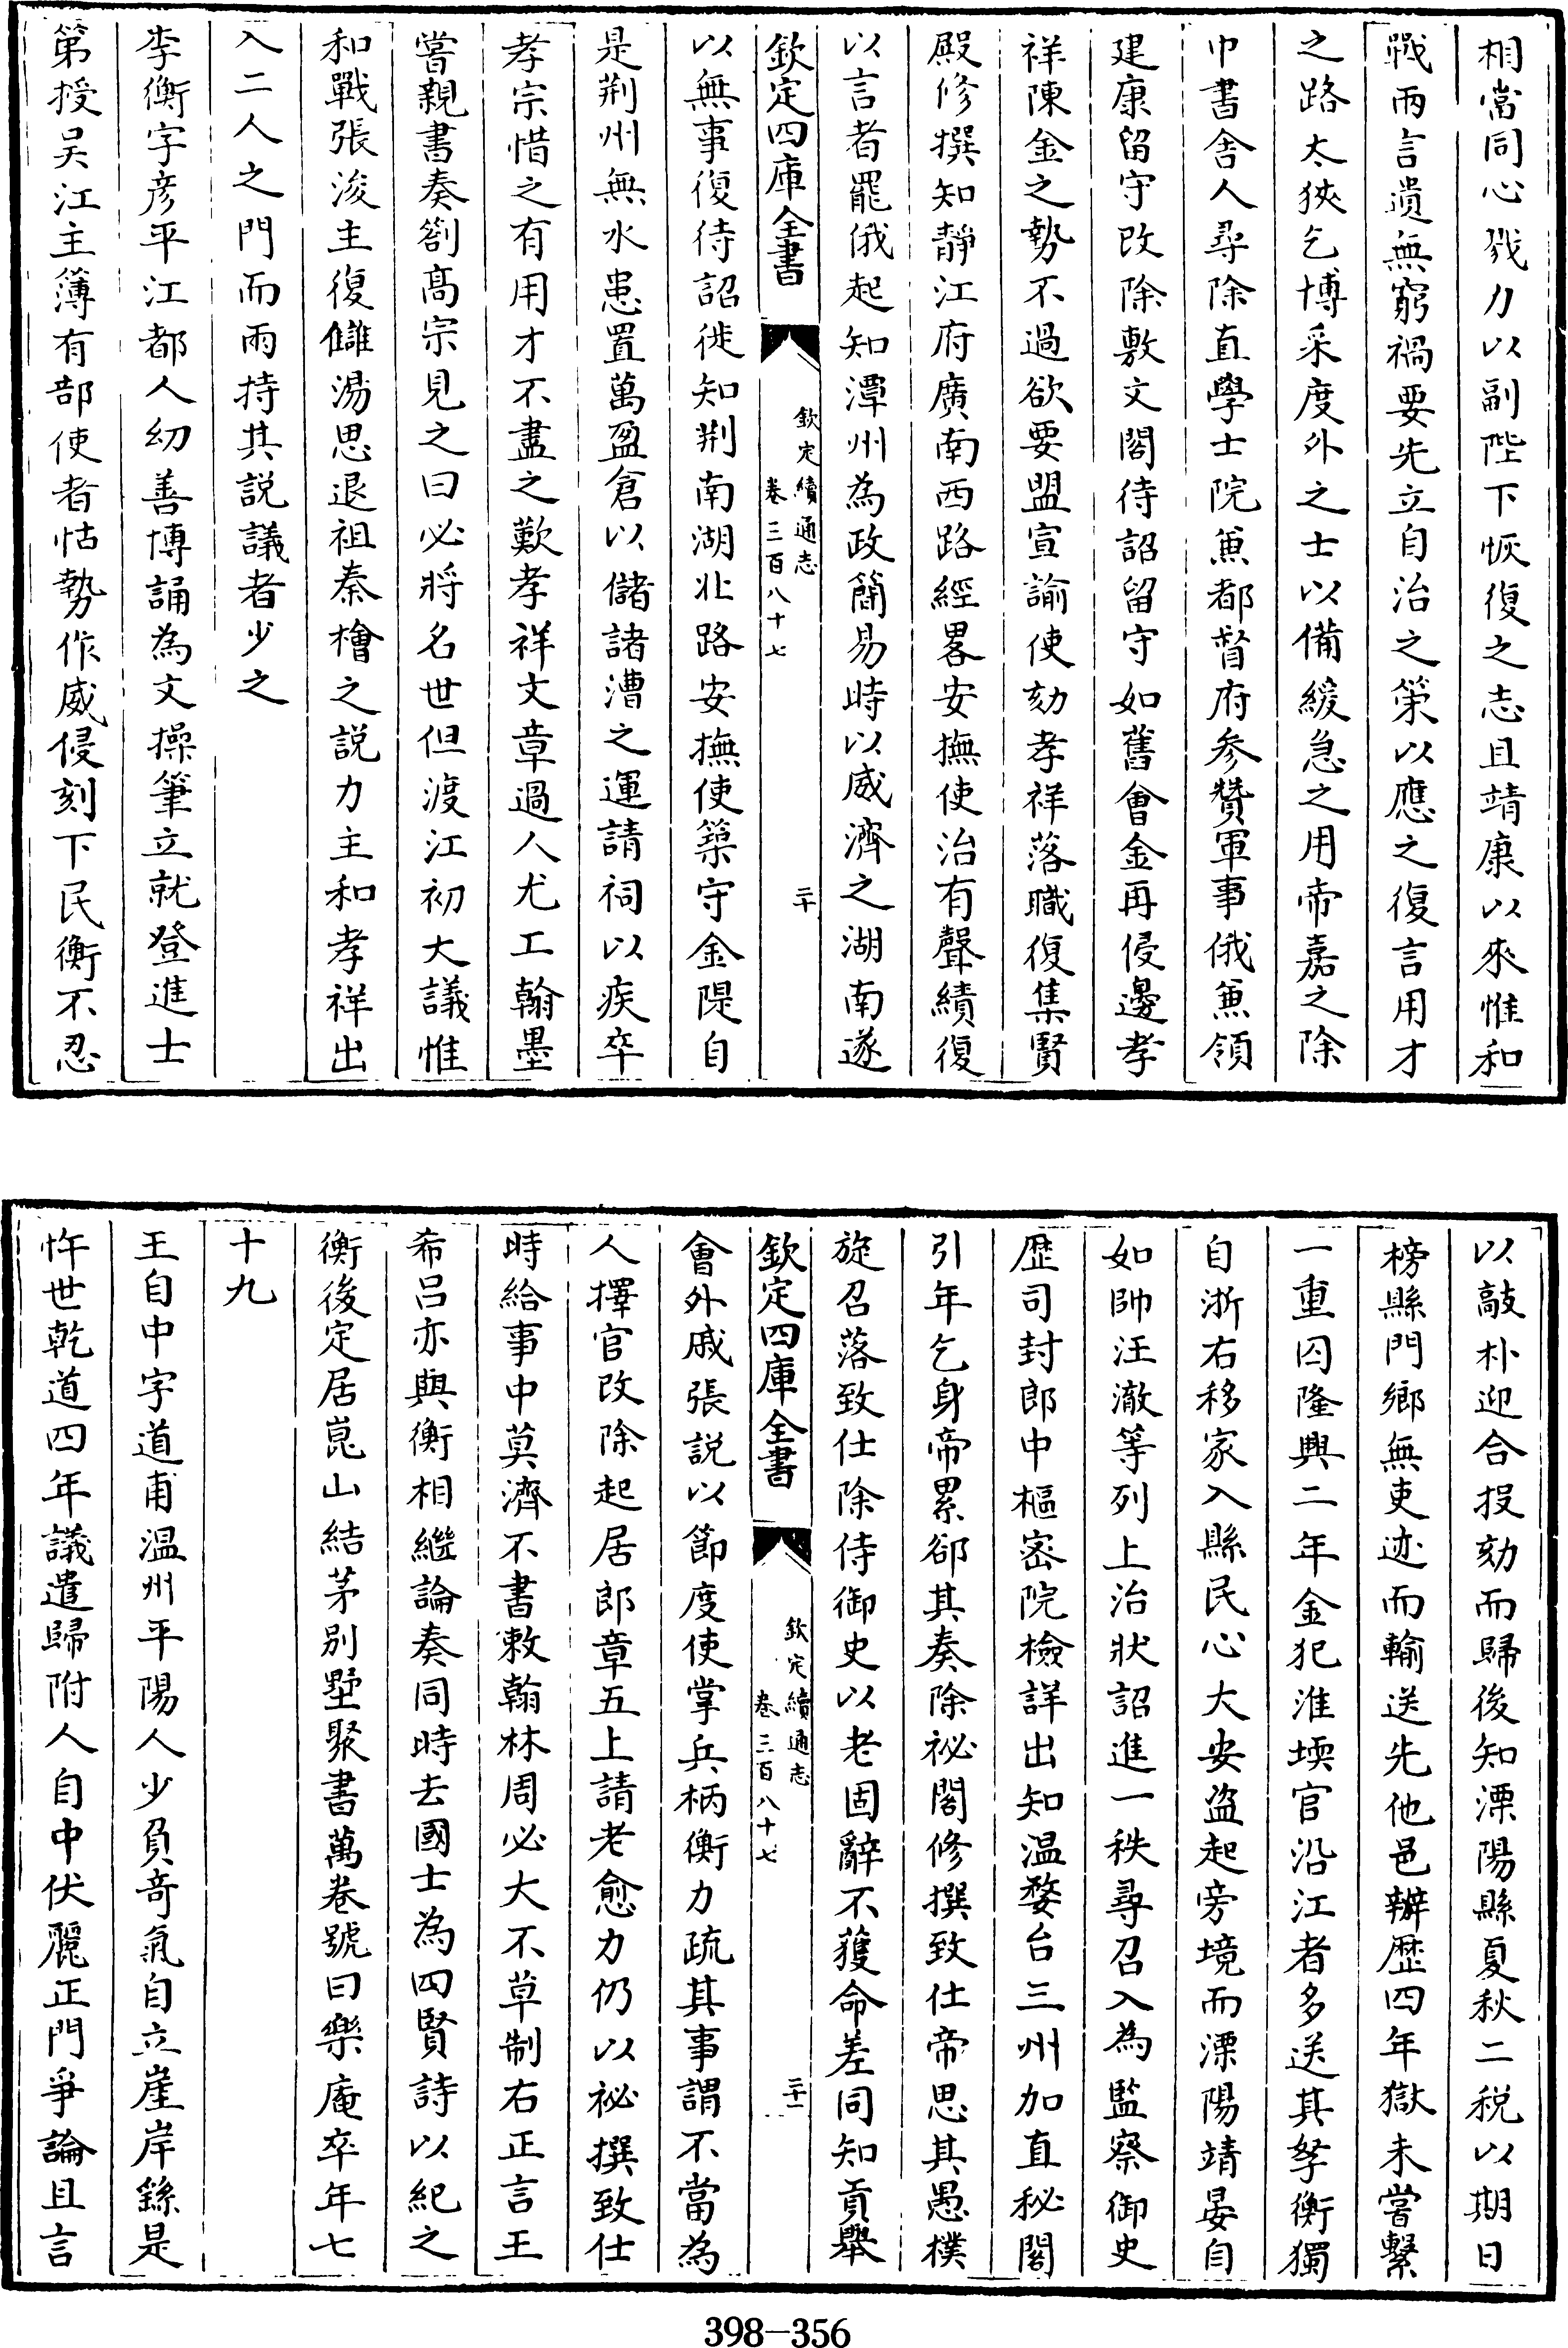 相當同心戮力以副陛下恢復之志且靖康以來惟和
戰兩言遺無窮禍要先立自治之策以應之復言用才
之路太狹乞博采度外之士以備緩急之用帝嘉之除
中書舍人尋除直學士院兼都督府參贊軍事俄兼領
建康留守改除敷文閣待詔留守如舊會金再侵邊孝
祥陳金之勢不過欲要盟宣諭使劾孝祥落職復集賢
殿修撰知靜江府廣南西路經畧安撫使治有聲績復
以言者罷俄起知潭州為政簡易時以威濟之湖南遂
欽定四庫全書
欽定續通志
卷三百八十七
二十
以無事復待詔徙知荆南湖北路安撫使築守金隄自
是荆州無水患置萬盈倉以儲諸漕之運請祠以疾卒
孝宗惜之有用才不盡之歎孝祥文章過人尤工翰墨
嘗親書奏劄高宗見之曰必將名世但渡江初大議惟
和戰張浚主復讎湯思退祖秦檜之説力主和孝祥出
入二人之門而兩持其説議者少之
李衡字彥平江都人幼善博誦為文操筆立就登進士
第授吴江主簿有部使者怙勢作威侵刻下民衡不忍
以敲朴迎合投劾而歸後知溧陽縣夏秋二税以期日
榜縣門鄉無吏迹而輸送先他邑辦歴四年獄未嘗繫
一重囚隆興二年金犯淮壖官沿江者多送其孥衡獨
自浙右移家入縣民心大安盗起旁境而溧陽靖晏自
如帥汪澈等列上治狀詔進一秩尋召入為監察御史
歴司封郎中樞密院檢詳出知温婺台三州加直秘閣
引年乞身帝累郤其奏除祕閣修撰致仕帝思其愚樸
旋召落致仕除侍御史以老固辭不獲命差同知貢舉
欽定四庫全書
欽定續通志
卷三百八十七
二十一
會外戚張説以節度使掌兵柄衡力疏其事謂不當為
人擇官改除起居郎章五上請老愈力仍以祕撰致仕
時給事中莫濟不書敕翰林周必大不草制右正言王
希吕亦與衡相繼論奏同時去國士為四賢詩以紀之
衡後定居崑山結茅别墅聚書萬卷號曰樂庵卒年七
十九
王自中字道甫温州平陽人少負奇氣自立崖岸繇是
忤世乾道四年議遣歸附人自中伏麗正門爭論且言
398-356